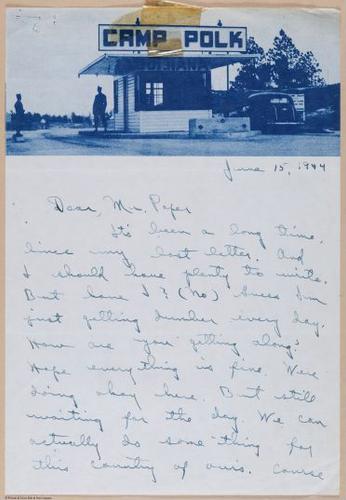 CAMP POLK
CAMP POLK
June 15, 1944
Dear, Mr. Peper
It's been a long time,
since my last letter. And
I should have plenty to write.
But have I? (No) Guess I'm
just getting dumber every day.
How are you getting along?
Hope everything is fine. We're
doing okay here. But still
waiting for the day. We can
actually do some-thing for
this country of ours. Course